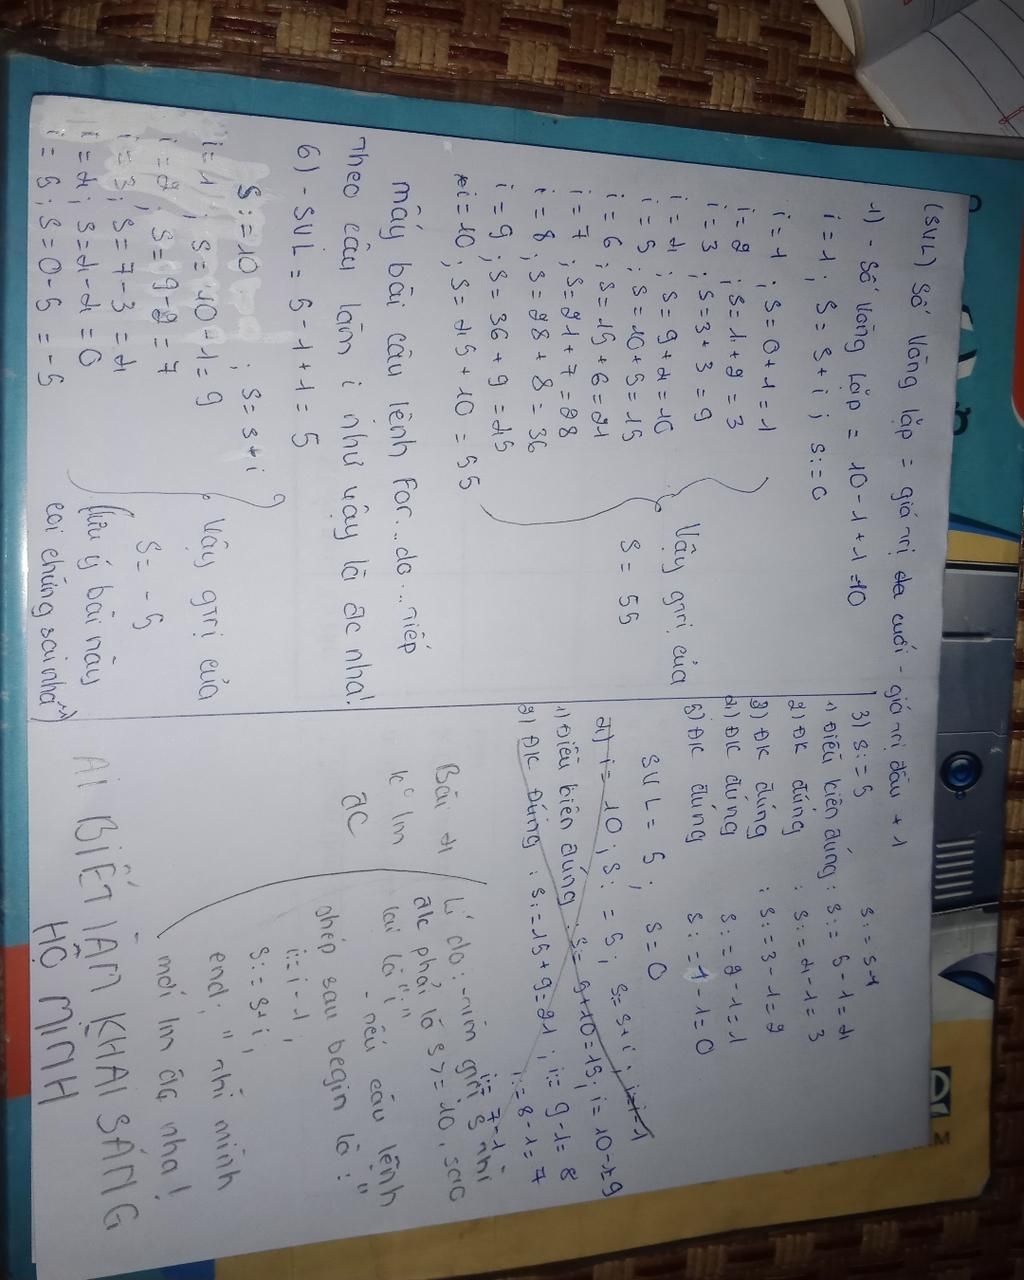 (SVL) Số vòng lặp = giá trị cuối - giá trị đầu + 1
1) - Số vòng lặp = 10 - 1 + 1 = 10
i = 1 ; S = S + i ; S := 0
i = 1 ; S = 0 + 1 = 1
i = 2 ; S = 1 + 2 = 3
i = 3 ; S = 3 + 3 = 9
i = 4 ; S = 9 + 4 = 10
i = 5 ; S = 10 + 5 = 15
i = 6 ; S = 15 + 6 = 21
i = 7 ; S = 21 + 7 = 28
i = 8 ; S = 28 + 8 = 36
i = 9 ; S = 36 + 9 = 45
i = 10 ; S = 45 + 10 = 55
Vậy gtrị của
S = 55
mấy bài câu lệnh For..do.. tiếp
theo cậu làm i như vậy là đc nha!
6) - SVL = 5 - 1 + 1 = 5
S := 10 ; S = S + i
i = 1 ; S = 10 - 1 = 9
i = 2 ; S = 9 - 2 = 7
i = 3 ; S = 7 - 3 = 4
i = 4 ; S = 4 - 4 = 0
i = 5 ; S = 0 - 5 = -5
Vậy gtrị của
S = -5
(lưu ý bài này
coi chừng sai nha)
3) S := 5 S := S-1
1) Điều kiện đúng : S := 5 - 1 = 4
2) ĐK đúng : S := 4 - 1 = 3
3) ĐK đúng : S := 3 - 1 = 2
4) ĐK đúng S := 2 - 1 = 1
5) ĐK đúng S := 1 - 1 = 0
SVL = 5 ; S = 0
4) i = 10 ; S := 5 ; S = S + i ; i = i - 1
1) Điều kiện đúng : S = 5 + 10 = 15 ; i = 10 - 1 = 9
2) ĐK đúng : S := 15 + 9 = 21 ; i = 9 - 1 = 8
i := 8 - 1 = 7
i := 7 - 1
Bài 4
k° lm
đc
Lí do : - tìm gtrị S thì
đk phải là S >= 10, sao
lại là ";"
- nếu câu lệnh
ghép sau begin là : "
i := i - 1 ;
S := S + i ;
end; " thì mình
mới lm đc nha!
AI BIẾT LÀM KHAI SÁNG
HỘ MÌNH